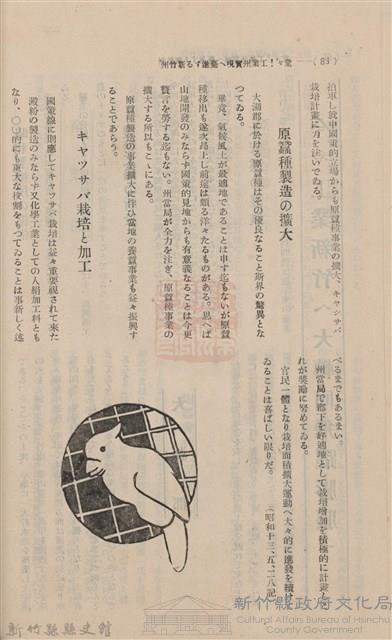 (83) 堂々！工業州實現へ邁進する新竹州
拍車し就中國策的立場からも原蠶種事業の擴大、キヤツサバ
栽培計畫に力を注いでゐる。
原蠶種製造の擴大
大湖郡に於ける原蠶種はその優良なること斯界の驚異とな
り
畢竟、氣候風土が最適地であることは申す迄もないが原蠶
種移出も逐次昂上し前途は頗る洋々たるものがある。思へば
山地開發のみならず國策的見地からも有意義なることは今更
贅言を勞する迄もない。州當局が全力を注ぎ、原蠶種事業の
擴大する所以もこゝにある。
原蠶種製造の事業擴大に伴ひ當地の養蠶事業も益々振興す
ることであらう。
キヤツサバ栽培と加工
國策線に則應してキヤツサバ栽培は益々重要視されて來た
澱粉の製造のみならず又化學工業としての人絹加工料とも
なり、〇〇的にも重大な役割をもつてゐることは事新しく述
べるまでもあるまい。
州當局で郡下を好適地として栽培增加を積極的に計畫し
れが奬勵に努めてゐる。
官民一體となり栽培面積擴大運動へ大々的に進發を續け
ゐることは喜ばしい限りだ。
(昭和十三、五、二八記
新竹縣縣史館
新竹縣政府文化局
Cultural Affairs Bureau of Hsinchu
County Government